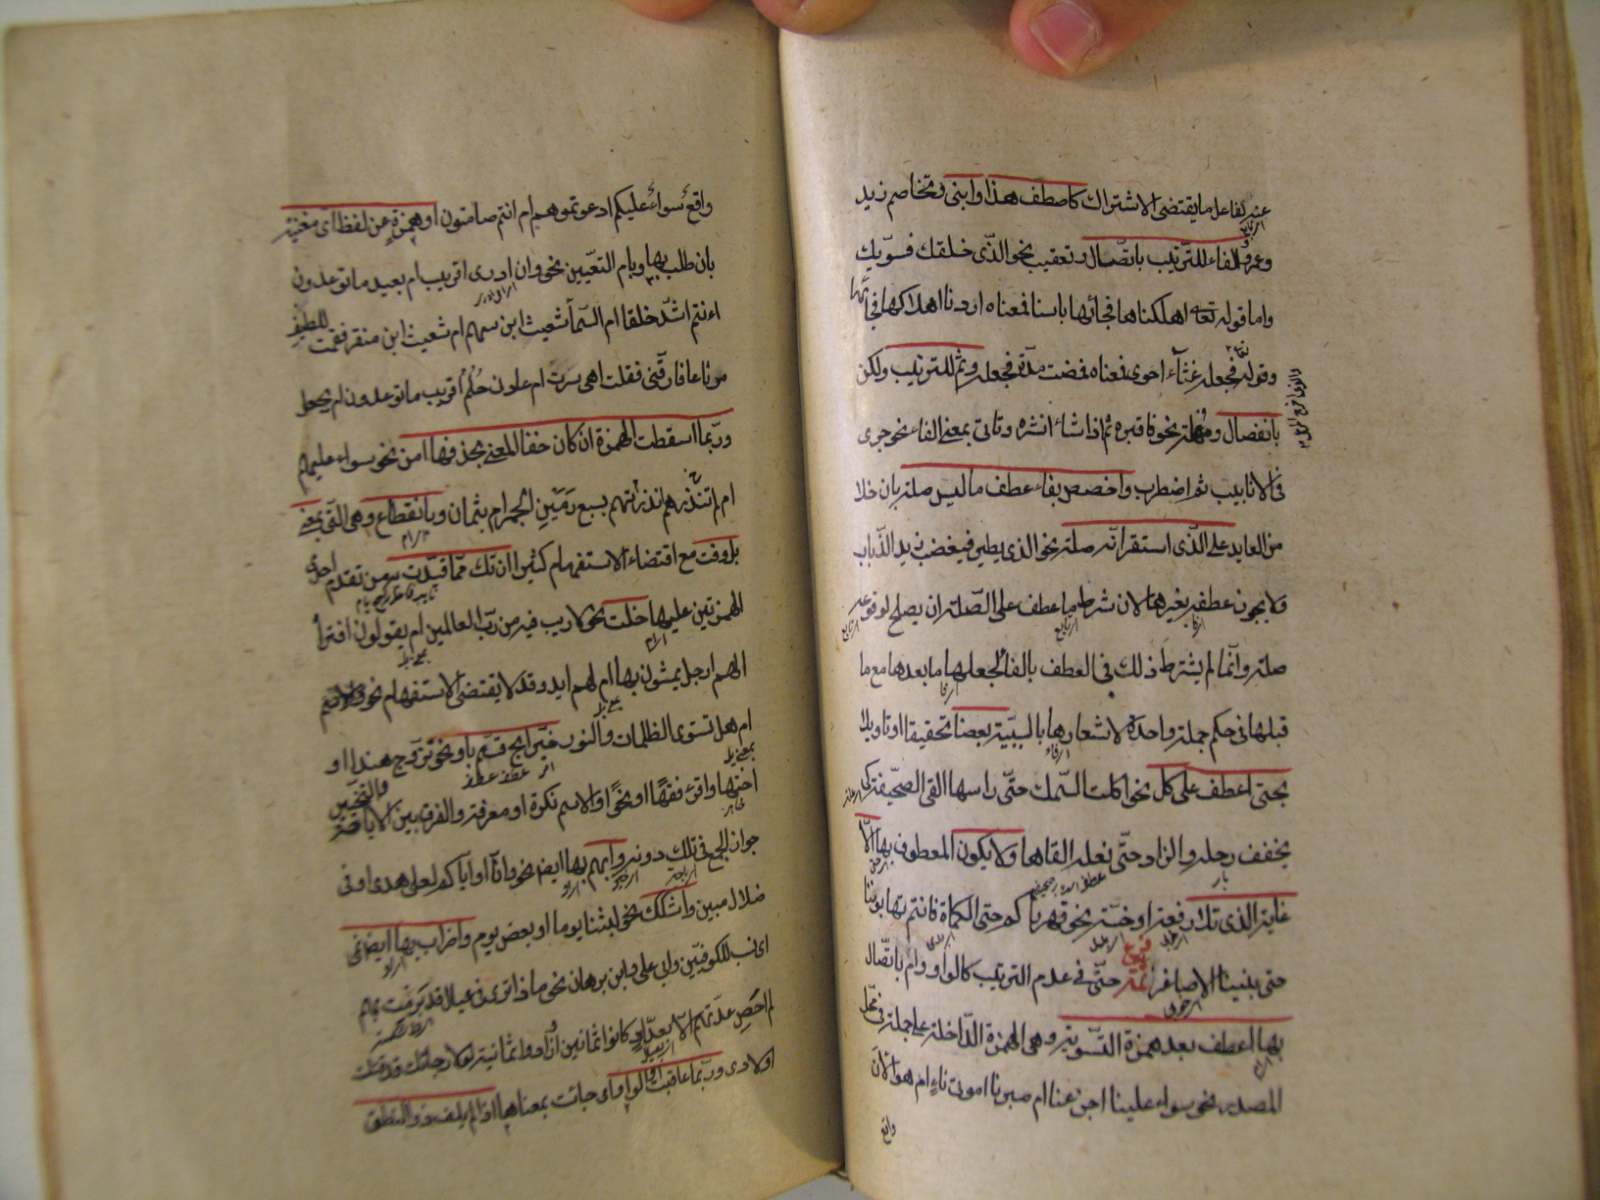 عنه كفاعل ما يقتضى الاشتراك كاصطف هذا وابنى وتخاصم زيد
وعمرو والفاء للترتيب باتصال وتعقيب نحو الذى خلقك فسويك
واما قوله تعه اهلكناها فجائها باسنا فمعناه اردنا اهلاكها فجائها
وقوله فجعله غثاء احوى فمعناه فمضت مدة فجعله وثم للترتيب ولكن
بانفصال ومهلة نحو فاقبره ثم اذا شاء انشره وتاتى بمعنى الفاء نحو جرى
فى الانابيب ثم اضطرب واخصص بفاء عطف ما ليس صلة بان خلا
من العايد على الذى استقر انه صلة نحو الذى يطير فيغضب زيد الذباب
ولا يجوز عطفه بغيرها لان شرط ما عطف على الصلة ان يصلح لوقوعه
صلة وانما لم يشترط ذلك فى العطف بالفاء لجعلها ما بعدها مع ما
قبلها فى حكم جملة واحدة لاشعارها بالسببية بعضا تحقيقا او تاويلا
بحتى اعطف على كل نحو اكلت السمك حتى راسها القى الصحيفة كى
يخفف رحله والزاد حتى نعله القاها ولا يكون المعطوف بها الا
غاية الذى تلا رفعة او خسة نحو قهرناكم حتى الكماة فانتم تهابوننا
حتى بنينا الاصاغر تتمة حتى فى عدم الترتيب كالواو وام باتصال
بها اعطف بعد همزة التسوية وهى الهمزة الداخلة على جملة فى محل
المصدر نحو سواء علينا اجزعنا ام صبرنا اموتى ناء ام هو الان
واقع
واقع سواء عليكم ادعوتموهم ام انتم صامتون او همزة عن لفظ اى مغنية
بان طلب بها وبام التعيين نحو وان ادرى اقريب ام بعيد ما توعدون
ءانتم اشد خلقا ام السماء شعيث ابن سهم ام شعيث ابن منقر فقمت للطيف
مرتاعا فارقنى فقلت اهى سرت ام عادنى حلم اقريب ما توعدون ام يجعل
وربما اسقطت الهمزة ان كان خفا المعنى بحذفها امن نحو سواء عليهم
ام لم تنذرهم انذرتهم بسبع رمين الجمر ام بثمان وبانقطاع وهى التى بمعنى
بل وفت مع اقتضاء الاستفهام كثيرا ان تك مما قيدت به من تقدم احدى
الهمزتين عليها خلت نحو لا ريب فيه من رب العالمين ام يقولون افتراه
الهم ارجل يمشون بها ام لهم ايد وقد لا يقتضى الاستفهام نحو
ام هل تستوى الظلمات والنور خير ابح قسم باو نحو تزوج هندا او
اختها واقرء فقها او نحوا والاسم نكرة او معرفة والفرق بين الاباحة والتخيير
جواز الجمع فى تلك دونه وابهم بها ايضا نحو وانا او اياكم لعلى هدى او فى
ضلال مبين واشكك نحو لبثنا يوما او بعض يوم واضراب بها ايضا نمى
اى نسب للكوفيين وابى على وابن برهان نحو ماذا ترى فى عيال قد برمت بهم
لم احص عدتهم الا بعداد كانوا ثمانين او زادوا ثمانية لولا رجاؤك قد قتلت
اولادى وربما عاقبت الواو اى جائت بمعناها اذا لم يلف ذو النطق